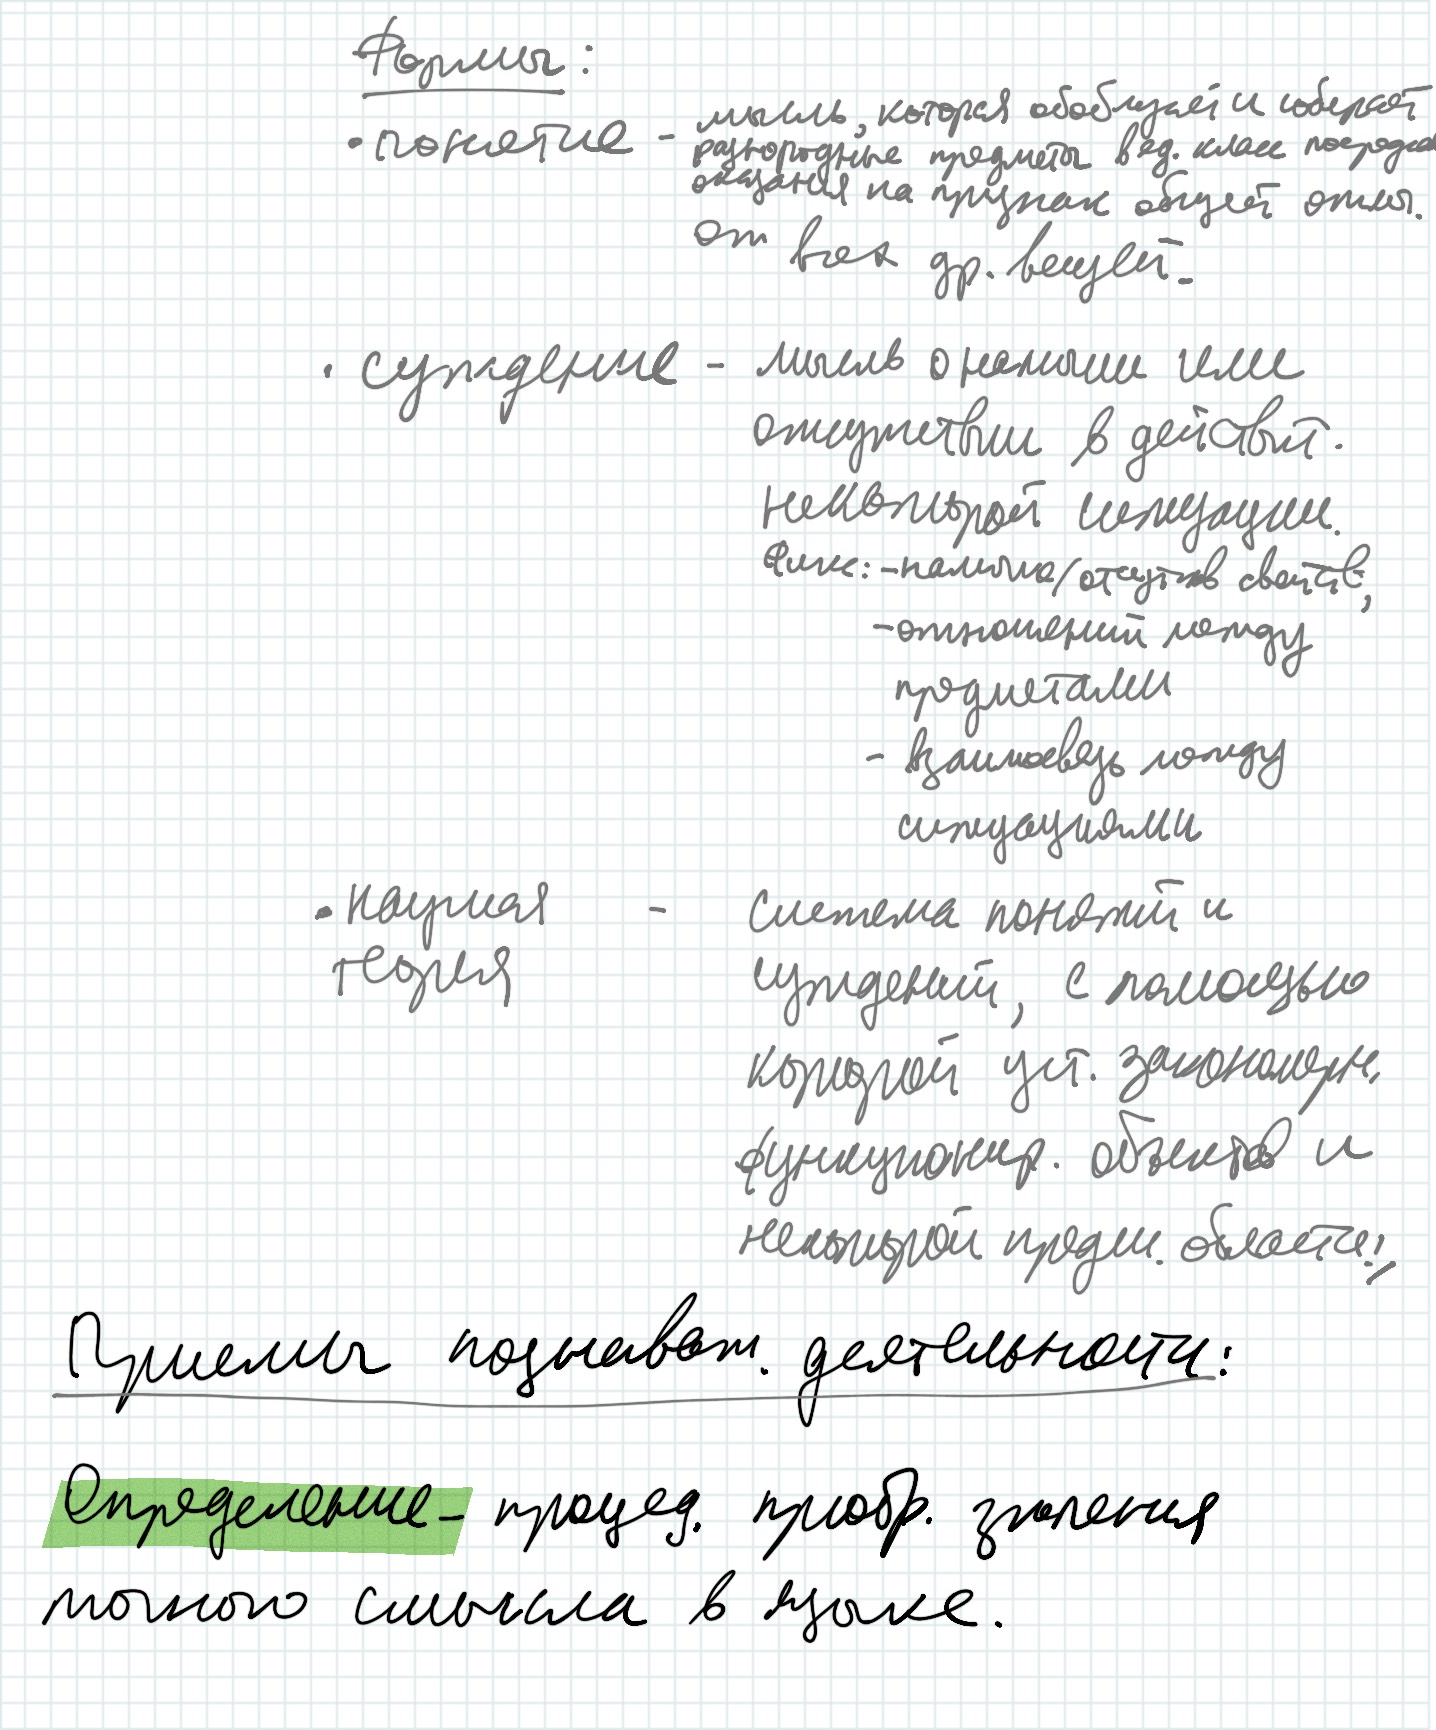 Формы:
• понятие - мысль, которая обобщает и собирает
разнородные предметы в ед. класс посредс
указания на признак общей отлич.
от всех др. вещей.
• суждение - мысль о наличии или
отсутствии в действит.
некоторой ситуации.
Фикс: - наличие/отсутств свойств,
- отношений между
предметами
- взаимосвязь между
ситуациями
• научная - система понятий и
теория суждений, с помощью
которой уст. закономерн.
функционир. объектов и
некоторой предм. области.
Приемы познават. деятельности:
Определение - процед. приобр. значения
точного смысла в языке.